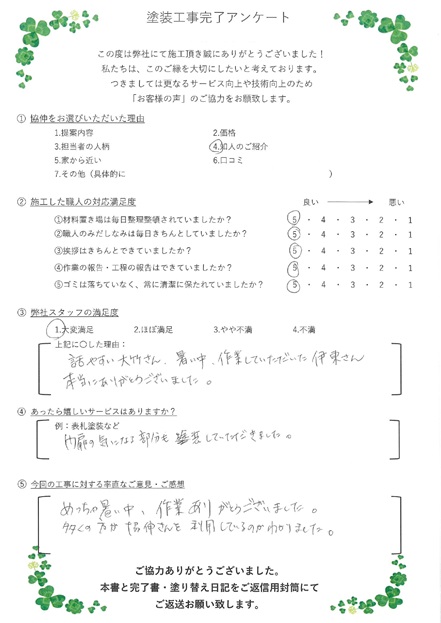 塗装工事完了アンケート
この度は弊社にて施工頂き誠にありがとうございました！
私たちは、このご縁を大切にしたいと考えております。
つきましては更なるサービス向上や技術向上のため
「お客様の声」のご協力をお願致します。
① 協伸をお選びいただいた理由
1.提案内容 2.価格
3.担当者の人柄 4.知人のご紹介
5.家から近い 6.口コミ
7.その他（具体的に ）
② 施工した職人の対応満足度 良い 悪い
①材料置き場は毎日整理整頓されていましたか？ 5 ・ 4 ・ 3 ・ 2 ・ 1
②職人のみだしなみは毎日きちんとしていましたか？ 5 ・ 4 ・ 3 ・ 2 ・ 1
③挨拶はきちんとできていましたか？ 5 ・ 4 ・ 3 ・ 2 ・ 1
④作業の報告・工程の報告はできていましたか？ 5 ・ 4 ・ 3 ・ 2 ・ 1
⑤ゴミは落ちていなく、常に清潔に保たれていましたか？ 5 ・ 4 ・ 3 ・ 2 ・ 1
③ 弊社スタッフの満足度
1.大変満足 2.ほぼ満足 3.やや不満 4.不満
上記に○した理由：
話やすい大竹さん、暑い中、作業していただいた伊東さん
本当にありがとうございました。
④ あったら嬉しいサービスはありますか？
例：表札塗装など
の気になる部分も していただきました。
⑤ 今回の工事に対する率直なご意見・ご感想
めっちゃ暑い中、作業ありがとうございました。
多くの方が協伸さんを利用しているのがわかりました。
ご協力ありがとうございました。
本書と完了書・塗り替え日記をご返信用封筒にて
ご返送お願い致します。